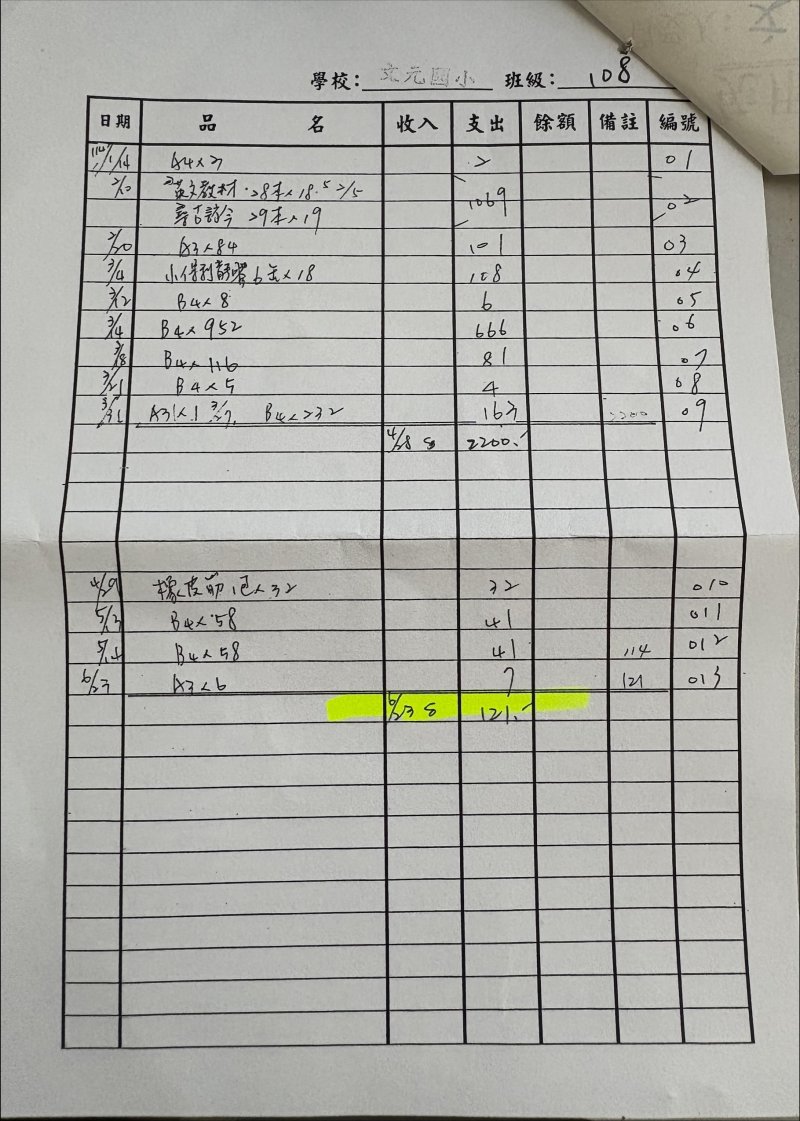 學校：文元國小 班級：108
日期 品名 收入 支出 餘額 備註 編號
114/1/14 A4×3 2 01
2/12 英文教材 28本×18.5 2/5 1069 02
29本×19
2/20 A3×84 101 03
3/4 ×18 108 04
3/12 B4×8 6 05
3/14 B4×952 666 06
3/18 B4×116 81 07
3/21 B4×5 4 08
3/31 3/27 B4×232 163 2200 09
4/28 2200.-
4/29 橡皮筋1包×32 32 010
5/13 B4×58 41 011
5/14 B4×58 41 114 012
6/23 A3×6 7 121 013
6/23 121.-